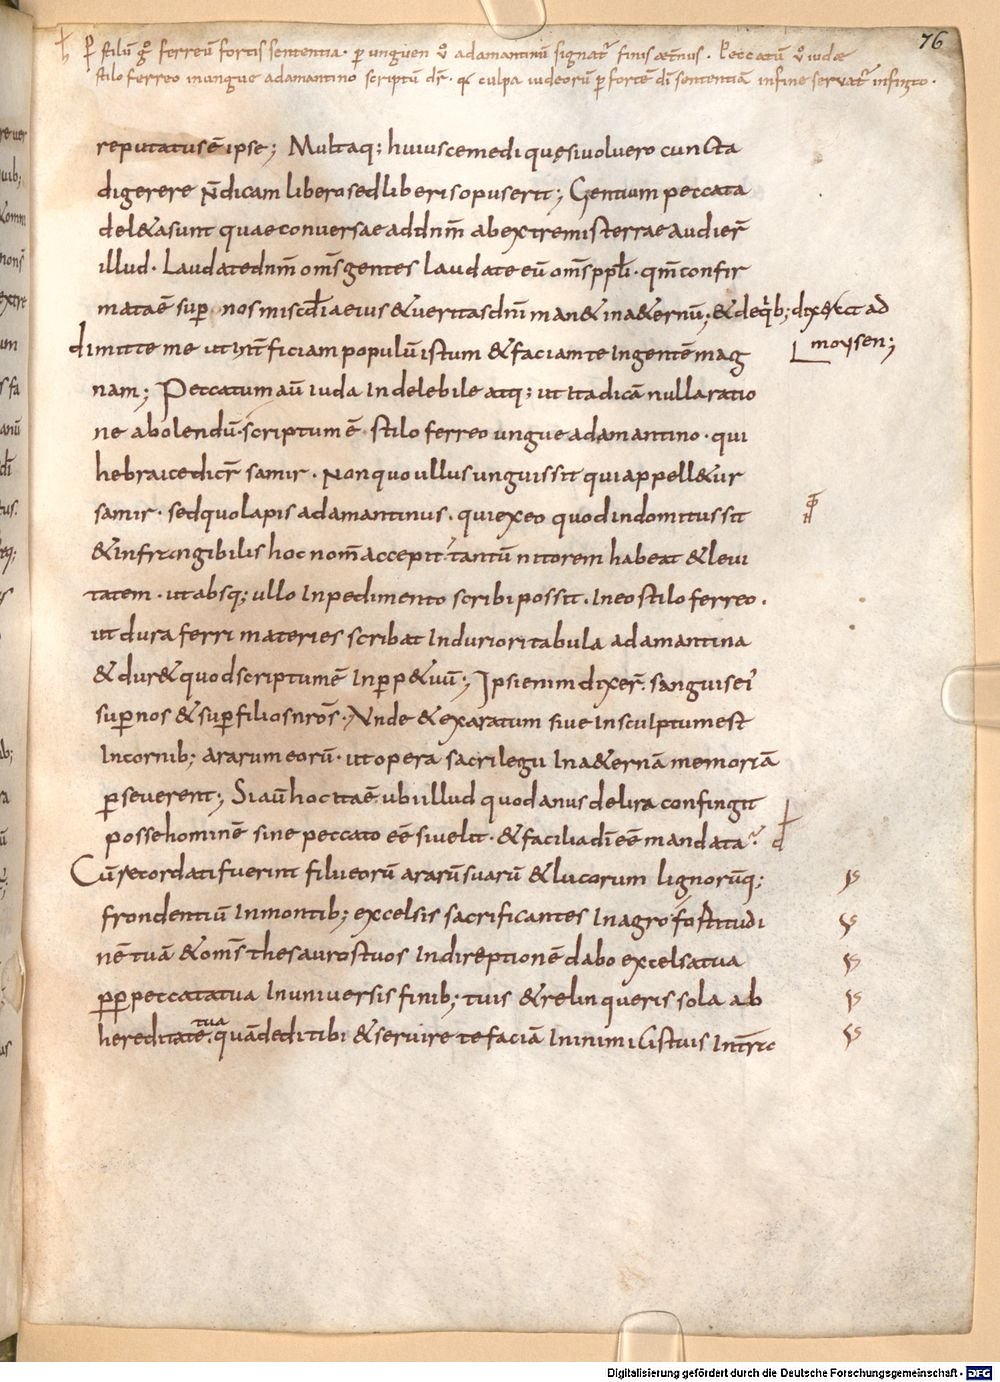 76
ħ P̄ stilū gͦ ferreū fortis sententia · ꝑ unguen ůo adamantinū signat᷒ finis aet̄nus · Peccatū ůo iudae
stilo ferreo inungue adamantino scriptū dr̄ · qͥ culpa iudeorū ꝑ fortē dī sententiā infine servat᷒ infinito ·
reputatus ē ipse; Multaq; huiuscemodi quę si voluero cuncta
digerere n̄ dicam libero sed liberis opus erit; Gentium peccata
del&a sunt quae conversae ad dnm̄ ab extremis terrae audier̄
illud · Laudate dnm̄ oms̄ gentes laudate eū oms̄ ppli · qm̄ confir
mata ē sup̱ nos miscd̄ia eius & veritas dnī man& in a&ernū; & de qͥb; dix& d̄s ad
moysen;
dimitte me ut int̄ficiam populū istum & faciam te in gentē mag
nam; Peccatum aū iuda indelebile atq; ut ita dicā nulla ratio
ne abolendū · scriptum ē stilo ferreo ungue adamantino · qui
hebraice dicr̄ samir · Non quo ullus unguis sit qui appell&ur
samir · sed quo lapis adamantinus · qui ex eo quod indomitus sit
& infrangibilis hoc nom̄ accepit · tantū nitorem habeat & leui
tatem · ut absq; ullo inpedimento scribi possit · In eo stilo ferreo ·
ut dura ferri materies scribat in duriori tabula adamantina
& dur& quod scriptum ē in ꝑp&uū; Ipsi enim dixer̄ · sanguis ei᷒
suꝑ nos & suꝑ filios nrōs · Unde & exaratum siue insculptum est
in cornib; ararum eorū · ut opera sacrilegii in a&ernā memoriā
ꝑseuerent; Si aū hoc ita ē ubi illud quod anus delira confingit
posse hominē sine peccato eē si uelit · & facilia dī eē mandata ?
Cū recordati fuerint filii eorū ararū suarū & lucorum lignorūq;
frondentiū in montib; excelsis sacrificantes in agro fortitudi
nē tuā & oms̄ thesauros tuos in direptionē dabo excelsa tua
ꝓpꝑ peccata tua in universis finib; tuis & relinqueris sola ab
hereditate tua quā dedi tibi & servire te faciā inimicis tuis in tr̄a
Digitalisierung gefördert durch die Deutsche Forschungsgemeinschaft - DFG